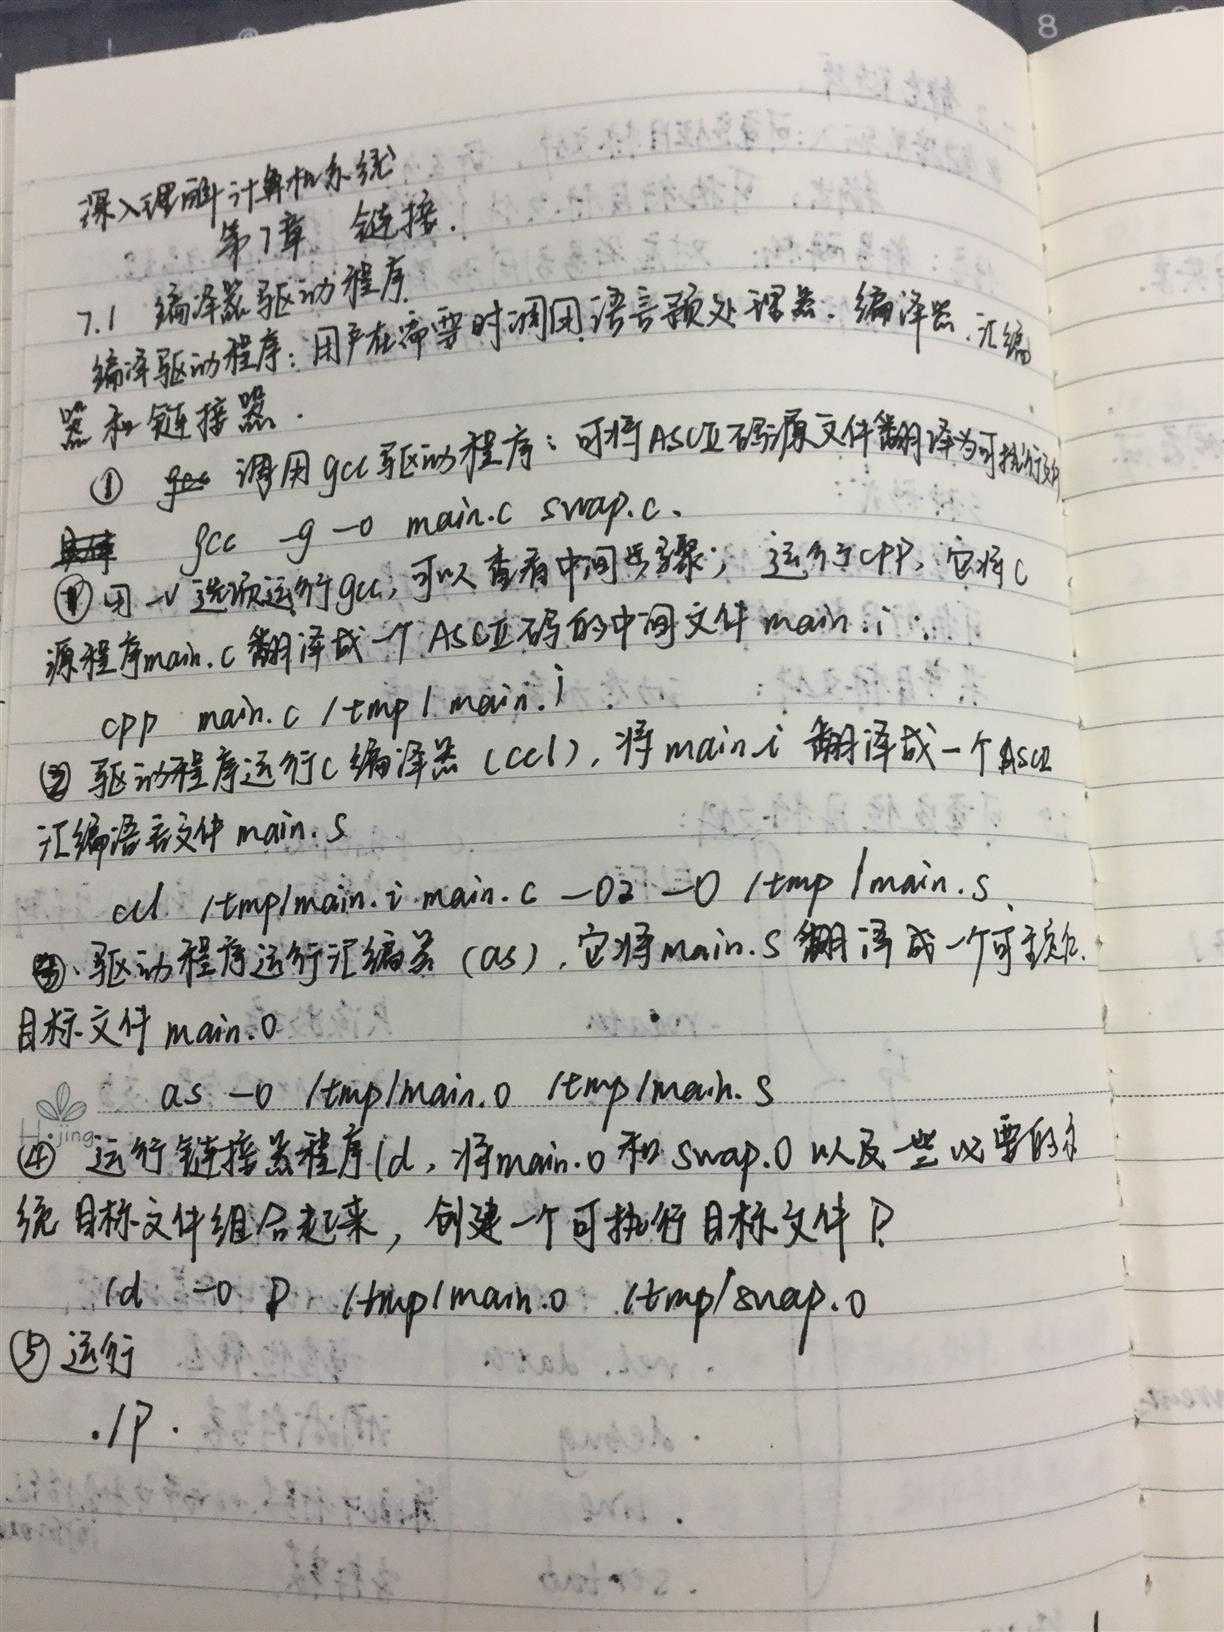 深入理解计算机系统
第7章 链接.
7.1 编译器驱动程序
编译驱动程序:用户在需要时调用语言预处理器、编译器、汇编
器和链接器.
① 调用gcc驱动程序:可将ASCII码源文件翻译为可执行文件
gcc -g -o main.c swap.c.
① 用 -v 选项运行gcc,可以查看中间步骤; 运行cpp,它将C
源程序main.c翻译成一个ASCII码的中间文件main.i
cpp main.c /tmp/main.i
② 驱动程序运行C编译器(cc1),将main.i 翻译成一个ASCII
汇编语言文件main.s
cc1 /tmp/main.i main.c -O2 -o /tmp/main.s
③、驱动程序运行汇编器(as),它将main.s翻译成一个可重定位
目标文件main.o
as -o /tmp/main.o /tmp/main.s
Hi jing
④ 运行链接器程序ld,将main.o和swap.o以及一些必要的系
统目标文件组合起来,创建一个可执行目标文件P.
ld -o P /tmp/main.o /tmp/swap.o
⑤ 运行
./P.
8